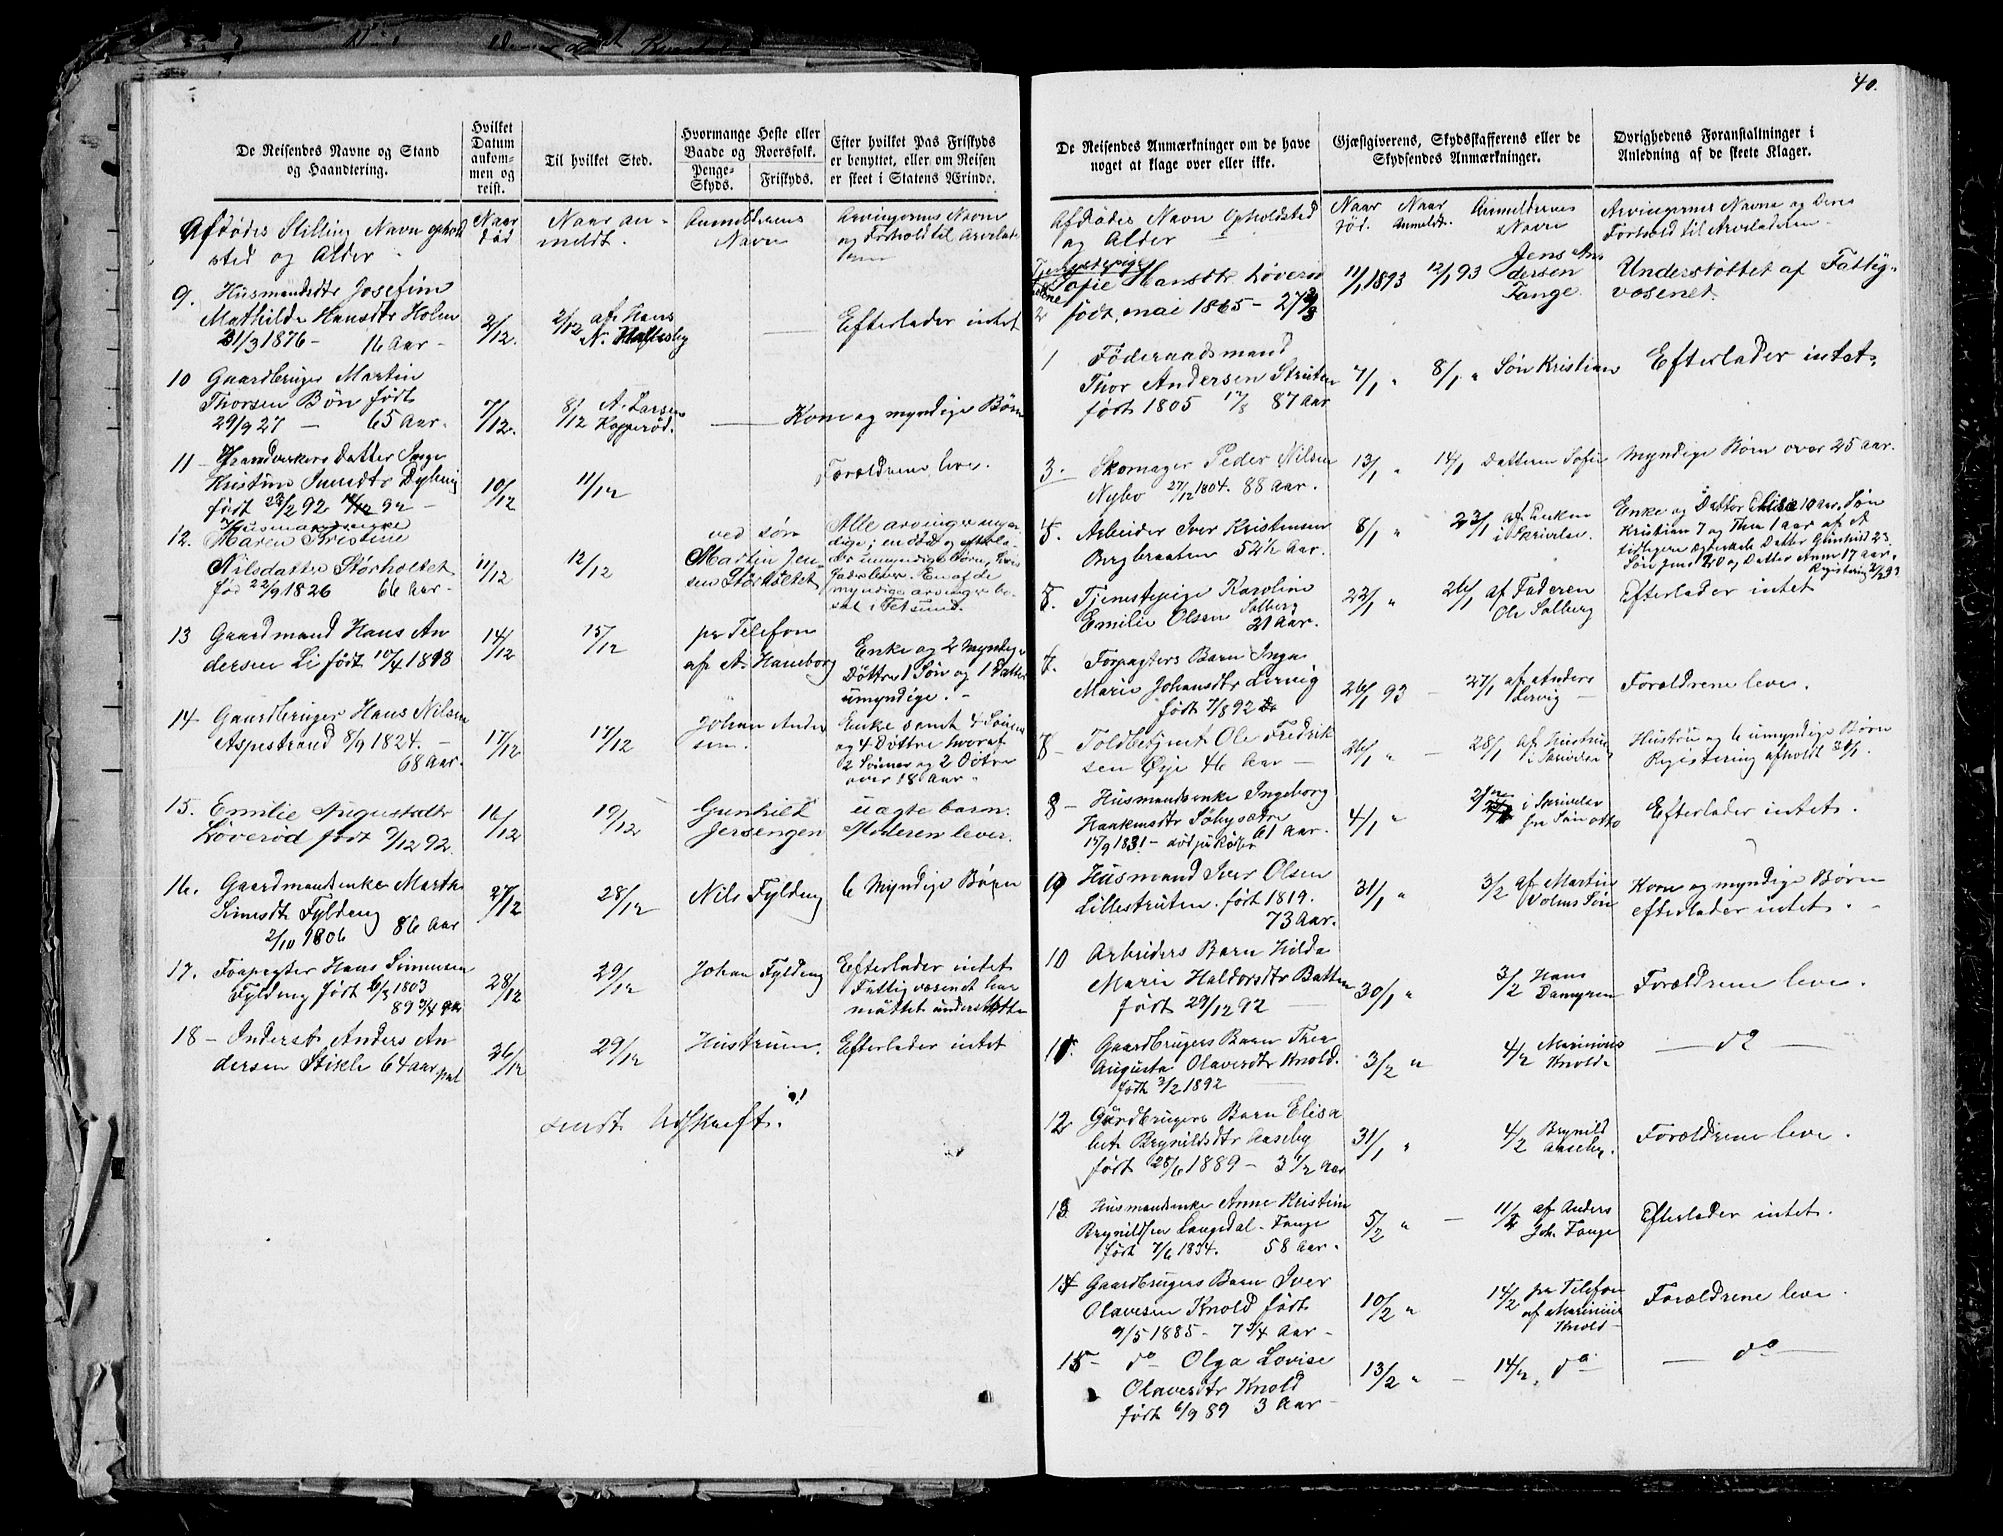 40.
De Reisendes Navne og Stand
og Haandtering.
Hvilket
Datum
ankom-
men og
reist.
Til hvilket Sted.
Hvormange Heste eller
Baade og Roersfolk.
Penge-
Skyds.
Friskyds.
Efter hvilket Pas Friskyds
er benyttet, eller om Reisen
er skeet i Statens Ærinde.
Afdødes Stilling Navn opholds
sted og Alder
Naar
død
Naar an-
meldt.
Anmelderens
Navn
Arvingernes Navne
og Forhold til Arvelade
ren
9. Husmandsdtr Josefine
Mathilde Hansdtr Holm
21/3 1876 - 16 Aar -
2/12.
2/12 af Hans
N. Haltesby
Efterlader intet
10 Gaardbruger Martin
Thorsen Bøn født
29/9 27 - 65 Aar -
7/12.
8/12 A. Larsen
Kopperød.
Kone og myndige Børn
11 - Haandverkers Datter Inga
Kristine
født 92
10/12
11/12
Forældrene leve.
12. Husmandsenke
Maren Kristine
Nilsdatter Storholtet
fød 22/9 1826 66 Aar -
11/12
12/12
ved søn
Martin Jen-
sen Storholtet
Alle arvinge myn
dige; en død og efterla
der umyndige børn, hvis
fader lever. En af de
myndige arvinge bo-
sat i
13 Gaardmand Hans An
dersen Li født 10/4 1818
14/12
15/12
pr Telefon
af A. Haneborg
Enke og 2 myndige
Døttre 1 Søn og 1 Datter
umyndige. -
14 Gaardbruger Hans Nilsen
Aspestrand 8/9 1824. -
68 Aar -
17/12
17/12
Johan Ander
sen.
Enke samt 4 Sønner
og 4 Døttre hvoraf
2 Sønner og 2 Døtre
over 18 Aar -
15. Emilie Augustadtr
Løverød født 9/12 92.
16/12
19/12
Gunhild
Jersengen
uægte barn.
Moderen lever.
16. Gaardmandsenke Marthe
Simesdt Fylding
2/10 1806 86 Aar
27/12
28/12
Nils Fylding
6 Myndige Børn
17. Forpagter Hans Simensen
Fylding født 6/3 1803
89 3/4 Aar
28/12
29/12
Johan Fylding
Efterlader intet
Fattigvæsenet har
måttet understøtte
18 - Inderst Anders An
dersen Stikle 64 aar
26/12
29/12
Hustruen.
Efterlader intet
sendt Udskrift.
De Reisendes Anmærkninger om de have
noget at klage over eller ikke.
Gjæstgiverens, Skydsskafferens eller de
Skydsendes Anmærkninger.
Øvrighedens Foranstaltninger i
Anledning af de skeete Klager.
Afdødes Navn Opholdsted
og Alder
Naar
død.
Naar
Anmeldt.
Anmelderens
Navn
Arvingernes Navne og Deres
Forhold til Arveladeren
Tjenestepige
2 Sofie Hansdtr Løverød
født, mai 1865 - 27 2/3
11/1 1893
12/1 93
Jens An
dersen
Tange.
Understøttet af Fattig-
væsenet.
1 Føderaadsmand
Thor Andersen Struten
født 1805 17/8 87 Aar
7/1 "
8/1 "
Søn Kristian
Efterlader intet.
3. Skomager Peder Nilsen
Nybo 27/12 1804. 88 Aar.
13/1 "
14/1
Datteren Sofie
Myndige Børn over 25 Aar.
5. Arbeider Iver Kristensen
Bergbraaten 52 1/2 Aar.
8/1 "
23/1
af Enken
i Skrivelse.
Enke og Datter Elise 10 aar, Søn
Kristian 7 og Thea 1 aar af et
tidligere Ægteskab Datter Gunhild 23
Søn 20 og Datter Anne 17 aar.
Registering 2/2 93
Tjenestepige Karoline
Emilie Olsen Solberg
21 Aar.
22/1 "
26/1
af Faderen
Ole Solberg
Efterlader intet
7. Forpagters Barn Inga
Marie Johansdtr Lervig
født 7/8 92
26/1 93
27/1 af Anders
Lervig
Forældrene leve.
Toldbetjent Ole Fredrik
sen Øye 46 Aar -
26/1 "
28/1 af Hustruen
i Skrivelse
Hustru og 6 umyndige Børn
Registering afholdt 31/1
8 - Husmandsenke Ingeborg
Haakensdtr Søbysætre
17/9 1831 - 61 Aar.
4/1 "
i Skrivelse
fra Søn Otto
Efterlader intet.
Husmand Iver Olsen
Lillestruten. født 1819.
73 Aar.
31/1 "
3/2 af Martin
Kone og myndige Børn
efterlader intet. -
10 Arbeiders Barn Hilda
Marie Haldorsdtr Batten
født 29/12 92
30/1 "
3/2 Hans
Damgren
Forældrene leve.
11. Gaardbrugers Barn Thea
Augusta Olavesdtr Knold.
født 3/2 1892
3/2 "
4/2 Marinius
Knolde
do
12 Gårdbrugers Barn Elisa
bet Brynildsdtr Aaseby
født 28/6 1889 - 3 1/2 Aar
31/1 "
4/2 Brynild
Aaseby.
Forældrene leve.
13 Husmandsenke Anne Kristine
Brynildsen Langedal - Tange
født 7/6 1834. 58 Aar.
5/2 "
11/2 af Anders
Joh. Tange
Efterlader intet.
14 Gaardbrugers Barn Iver
Olavesen Knold født
9/5 1885 - 7 3/4 Aar -
10/2 "
14/2 pr Telefon
af Marinius
Knold -
Forældrene leve.
15 - do Olga Lovise
Olavesdtr Knold
født 6/9 89 3 Aar -
13/2 "
14/2, do
do